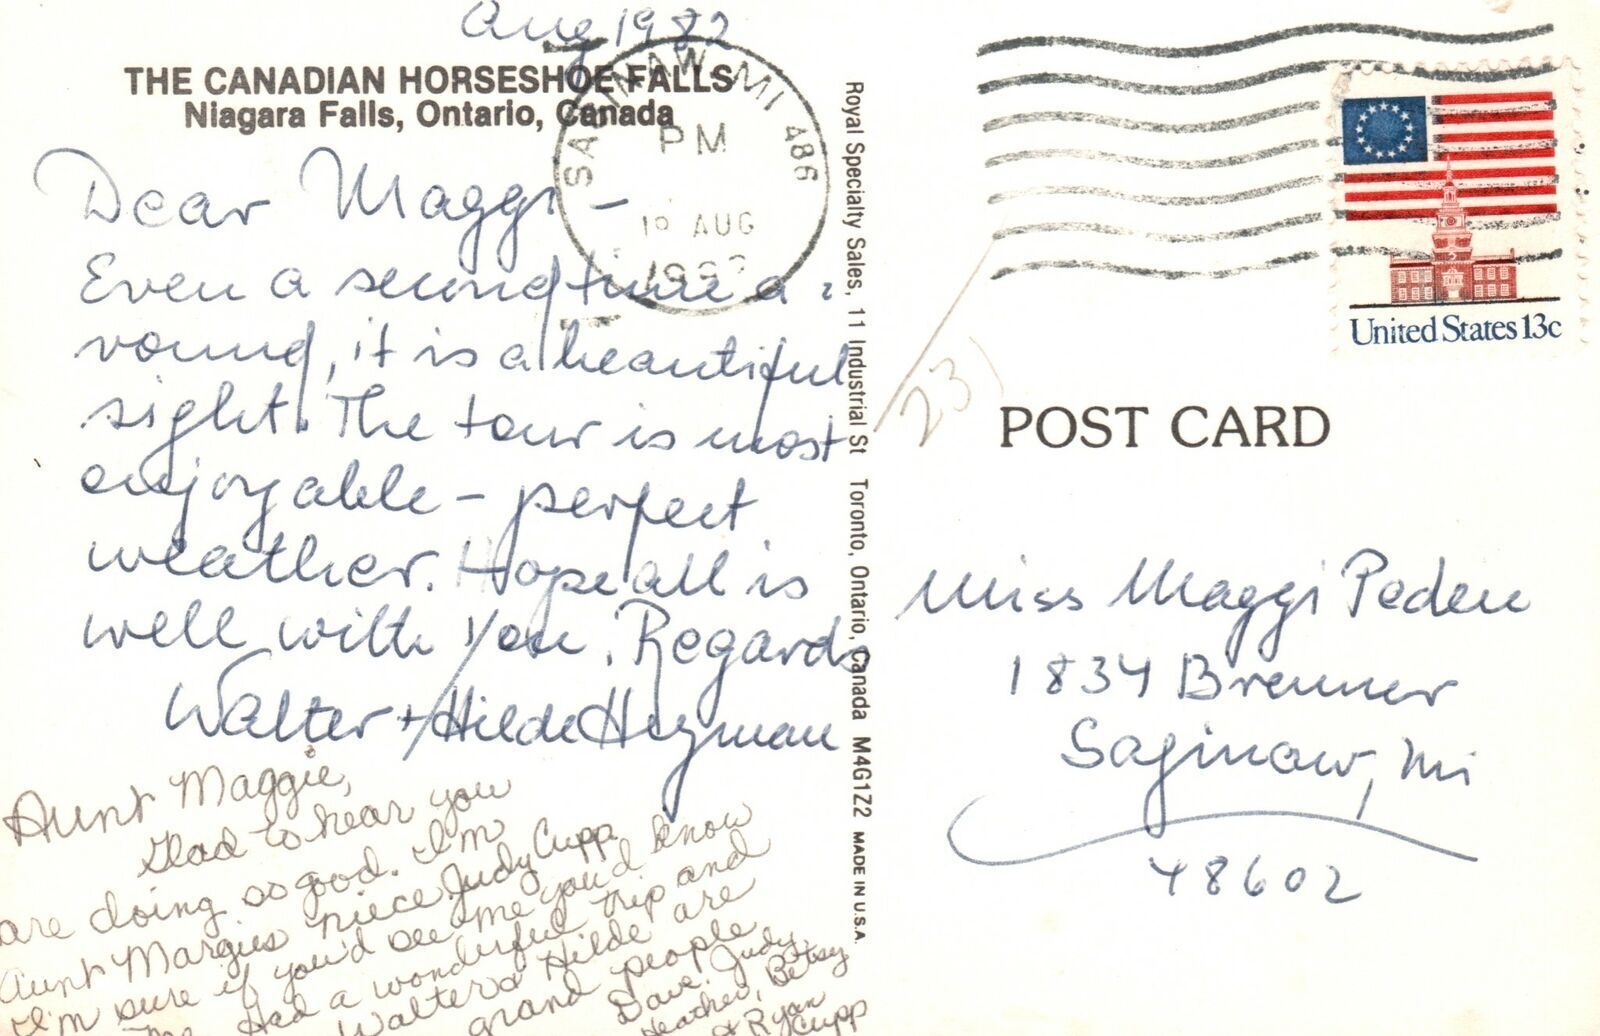 Aug 1982
THE CANADIAN HORSESHOE FALLS
Niagara Falls, Ontario, Canada
SAGINAW MI 486
PM
AUG
Dear Maggi –
Even a second time a-
round, it is a beautiful
sight. The tour is most
enjoyable – perfect
weather. Hope all is
well with you. Regards
Walter + Hilde
Aunt Maggie,
Glad to hear you
are doing so good. I'm
Aunt Margies niece Judy Cupp
I'm sure if you'd see me you'd know
me. Had a wonderful trip and
Walter & Hilde are
grand people
Dave, Judy,
Heather, Betsy
& Ryan
Cupp
Royal Specialty Sales, 11 Industrial St Toronto, Ontario, Canada M4G1Z2 MADE IN U.S.A.
231
United States 13c
POST CARD
Miss Maggi Peden
1834 Brenner
Saginaw, Mi
48602